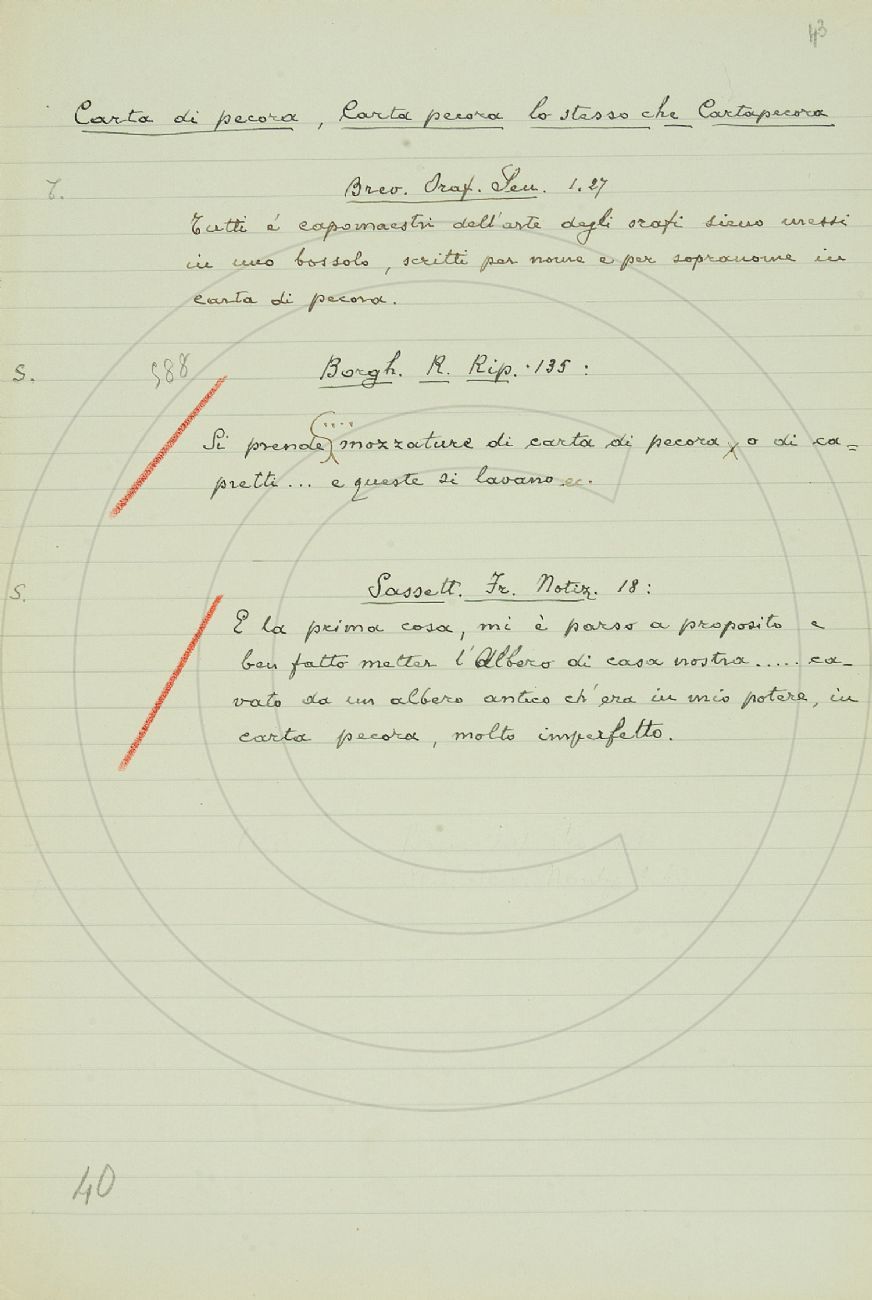 43
Carta di pecora, Carta pecora lo stesso che Cartapecora
T. Brev. Oraf. Sen. 1.27
Tutti é capomaestri dell'arte degli orafi sieno messi
in uno bossolo, scritti per nome e per sopranome in
carta di pecora.
S. 588 Borgh. R. Rip. 135:
Si prende .... mozzature di carta di pecora, o di ca=
pretti ... e queste si lavano ec.
S. Sassett. Fr. Notiz. 18:
E la prima cosa, mi è parso a proposito e
ben fatto metter l'Albero di casa nostra ..... ca-
vato da un albero antico ch'era in mio potere, in
carta pecora, molto imperfetto.
40